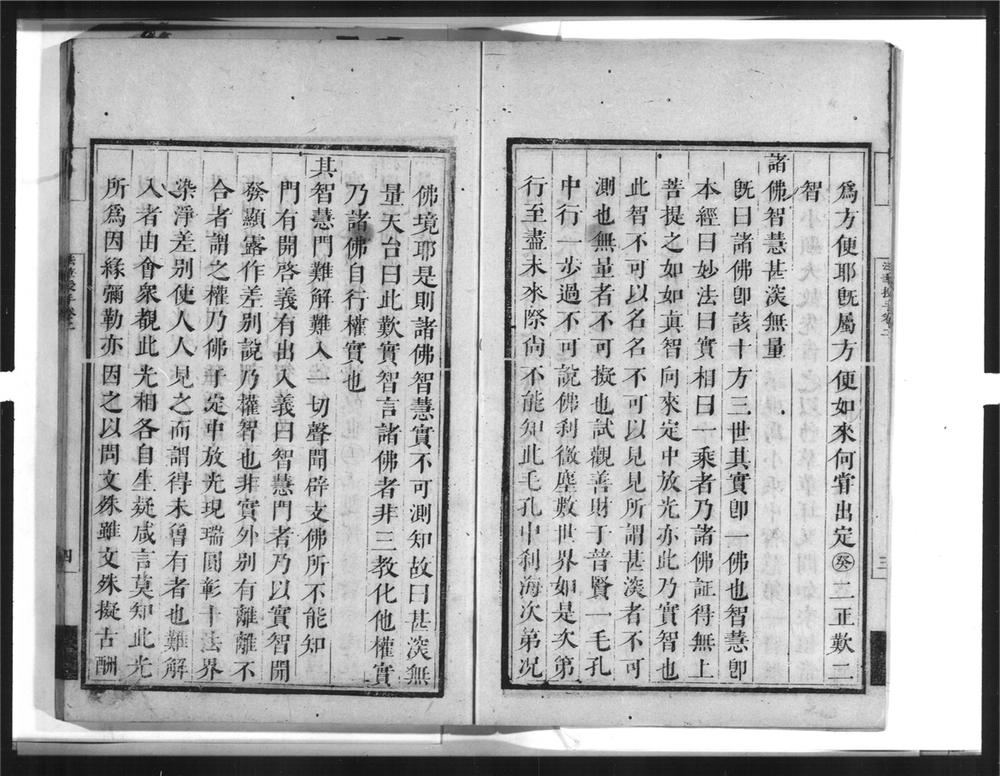 爲方便耶旣屬方便如來何嘗出定癸三正歎二
智
諸佛智慧甚深無量
旣曰諸佛卽該十方三世其實卽一佛也智慧卽
本經曰妙法曰實相曰一乘者乃諸佛証得無上
菩提之如如眞智向來定中放光亦此乃實智也
此智不可以名名不可以見見所謂甚深者不可
測也無量者不可擬也試觀善財于普賢一毛孔
中行一步過不可說佛刹微塵數世界如是次第
行至盡未來際尙不能知此毛孔中刹海次第况
三
佛境耶是則諸佛智慧實不可測知故曰甚深無
量天台曰此歎實智言諸佛者非三教化他權實
乃諸佛自行權實也
其智慧門難解難入一切聲聞辟支佛所不能知
門有開啓義有出入義曰智慧門者乃以實智開
發顯露作差別說乃權智也非實外別有離離不
合者謂之權乃佛于定中放光現瑞圓彰十法界
染淨差別使人人見之而謂得未曾有者也難解
入者由會衆覩此光相各自生疑咸言莫知此光
所爲因緣彌勒亦因之以問文殊雖文殊擬古酬
四